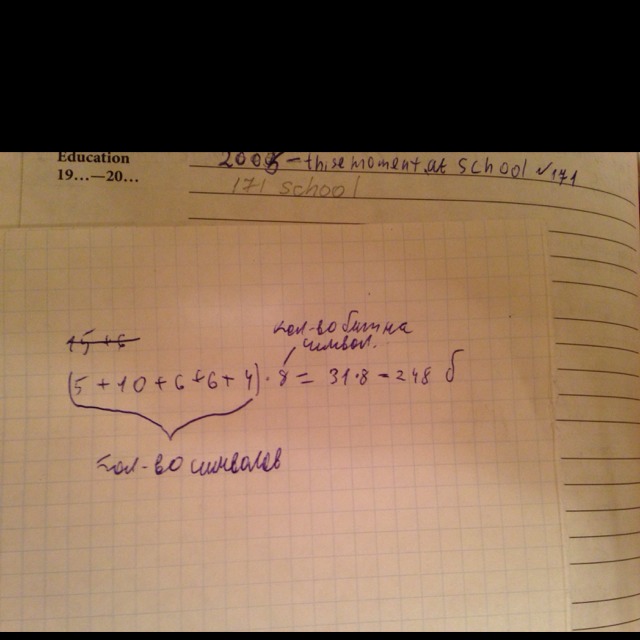 Education
19...—20...
2008 – this moment at school √171
171 school
15 + 6
кол-во бит на
символ.
(5 + 10 + 6 + 6 + 4) · 8 = 31·8 = 248 б
кол-во символов